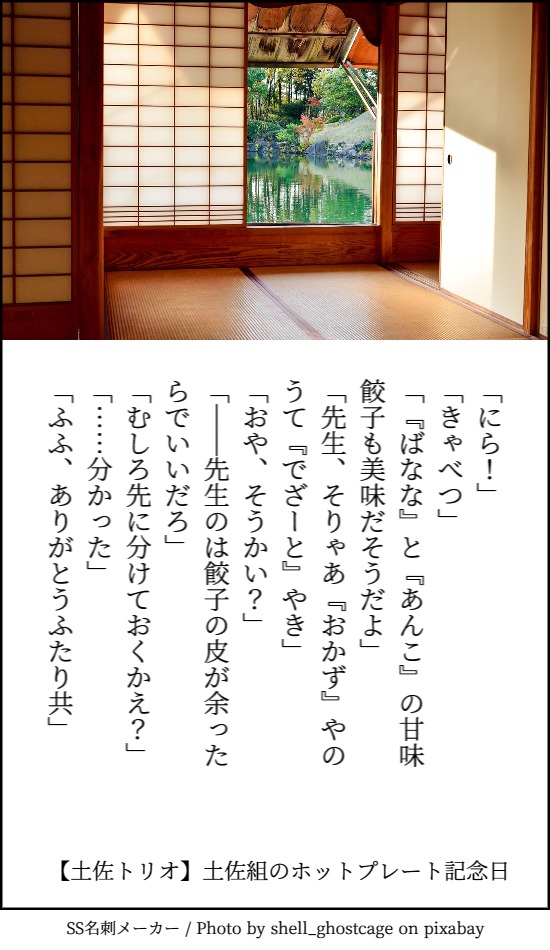 「にら！」
「きゃべつ」
「『ばなな』と『あんこ』の甘味
餃子も美味だそうだよ」
「先生、そりゃあ『おかず』やの
うて『でざーと』やき」
「おや、そうかい？」
「――先生のは餃子の皮が余った
らでいいだろ」
「むしろ先に分けておくかえ？」
「……分かった」
「ふふ、ありがとうふたり共」
【土佐トリオ】土佐組のホットプレート記念日
SS名刺メーカー / Photo by shell_ghostcage on pixabay